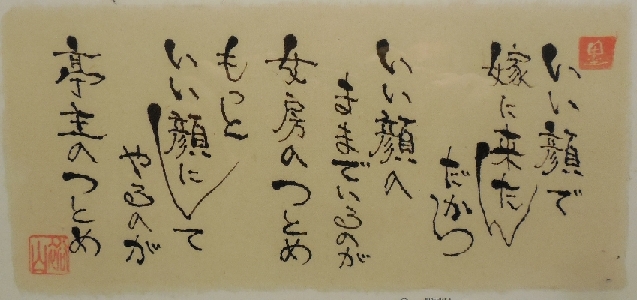 いい顔で
嫁に来たん
だから
いい顔の
ままでいるのが
女房のつとめ
もっと
いい顔にして
やるのが
亭主のつとめ